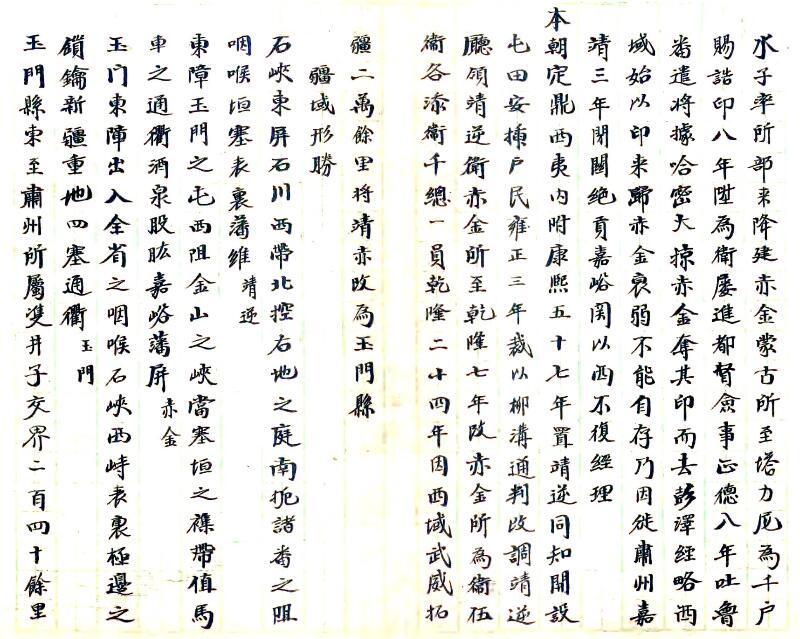 水子率所部来降建赤金蒙古所至塔力尼為千戶
賜誥印八年陞為衛屡進都督僉事正德八年吐魯
番遣将據哈密大掠赤金奪其印而去彭澤經略西
域始以印来歸赤金衰弱不能自存乃因徙肅州嘉
靖三年閉關絶貢嘉峪関以西不復經理
本朝定鼎西夷内附康熙五十七年置靖逆同知開設
屯田安揷戶民雍正三年裁以柳溝通判改調靖逆
廳領靖逆衛赤金所至乾隆七年改赤金所為衛伍
衛各添衛千總一員乾隆二十四年因西域武威拓
疆二萬餘里将靖赤改為玉門縣
疆域形勝
石峽東屏石川西帶北控右地之庭南扼諸番之阻
咽喉垣塞表裏藩維 靖逆
東障玉門之屯西阻金山之峽當塞垣之襟帶值馬
車之通衢酒泉股肱嘉峪藩屏 赤金
玉门東障出入全省之咽喉石峽西峙表裏極邊之
鎖鑰新疆重地四塞通衢 玉門
玉門縣東至肅州所屬雙井子交界二百四十餘里